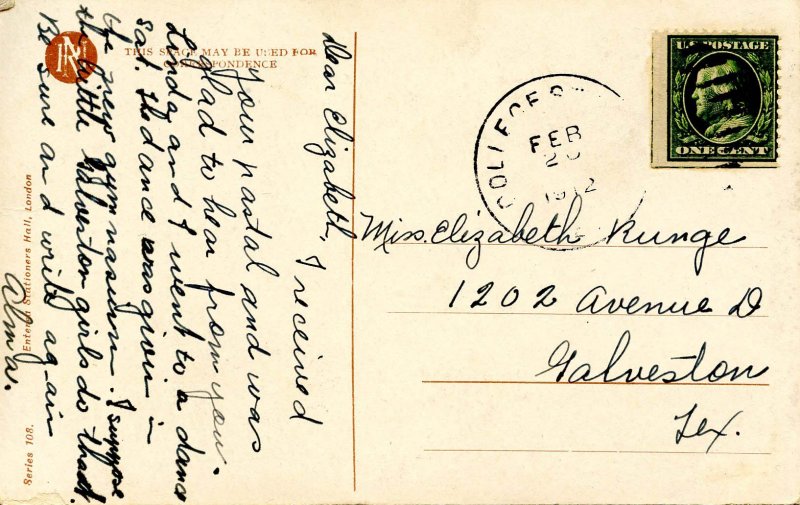 THIS SPACE MAY BE USED FOR
CORRESPONDENCE
Dear Elizabeth,
I received
your postal and was
glad to hear from you.
Linda and I went to a dance
Sat. The dance was given in
the new gymnasium. I suppose
the little Galveston girls do that.
Be sure and write again
Alma.
Entered Stationers Hall, London
Series 108.
U.S. POSTAGE
ONE CENT
COLLEGE
FEB
1912
Miss. Elizabeth Runge
1202 Avenue D
Galveston
Tex.